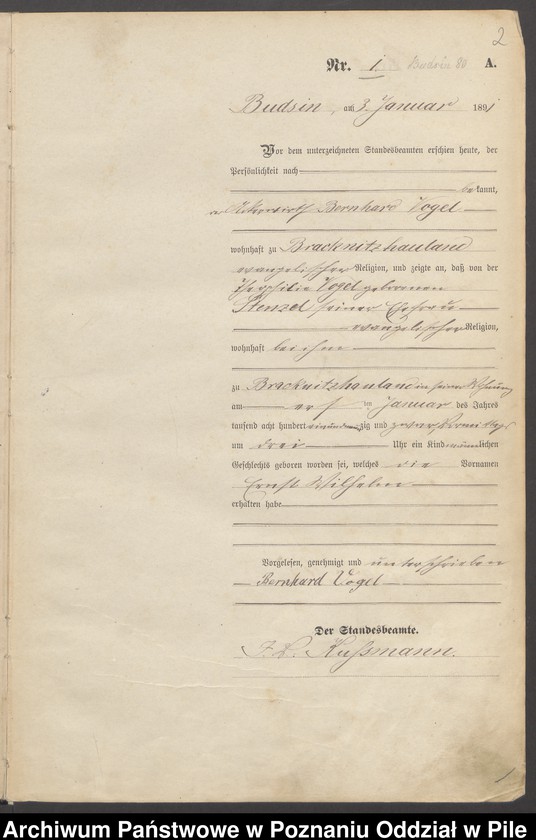 2
Nr. 1. Budsin 80 A.
Budsin, am 3. Januar 1891
Vor dem unterzeichneten Standesbeamten erschien heute, der
Persönlichkeit nach
bekannt,
Ackerwirth Bernhard Vogel
wohnhaft zu Bracknitzhauland
evangelischer Religion, und zeigte an, daß von der
Vogel geborenen
Stenzel seiner Ehefrau
evangelischer Religion,
wohnhaft bei ihm
zu Bracknitzhauland in seiner Wohnung
am ersten Januar des Jahres
tausend acht hundert einundneunzig und zwar Vormittags
um drei Uhr ein Kind männlichen
Geschlechts geboren worden sei, welches die Vornamen
Ernst Wilhelm
erhalten habe
Vorgelesen, genehmigt und unterschrieben
Bernhard Vogel
Der Standesbeamte.
Kussmann.
1
Archiwum Państwowe w Poznaniu Oddział w Pile